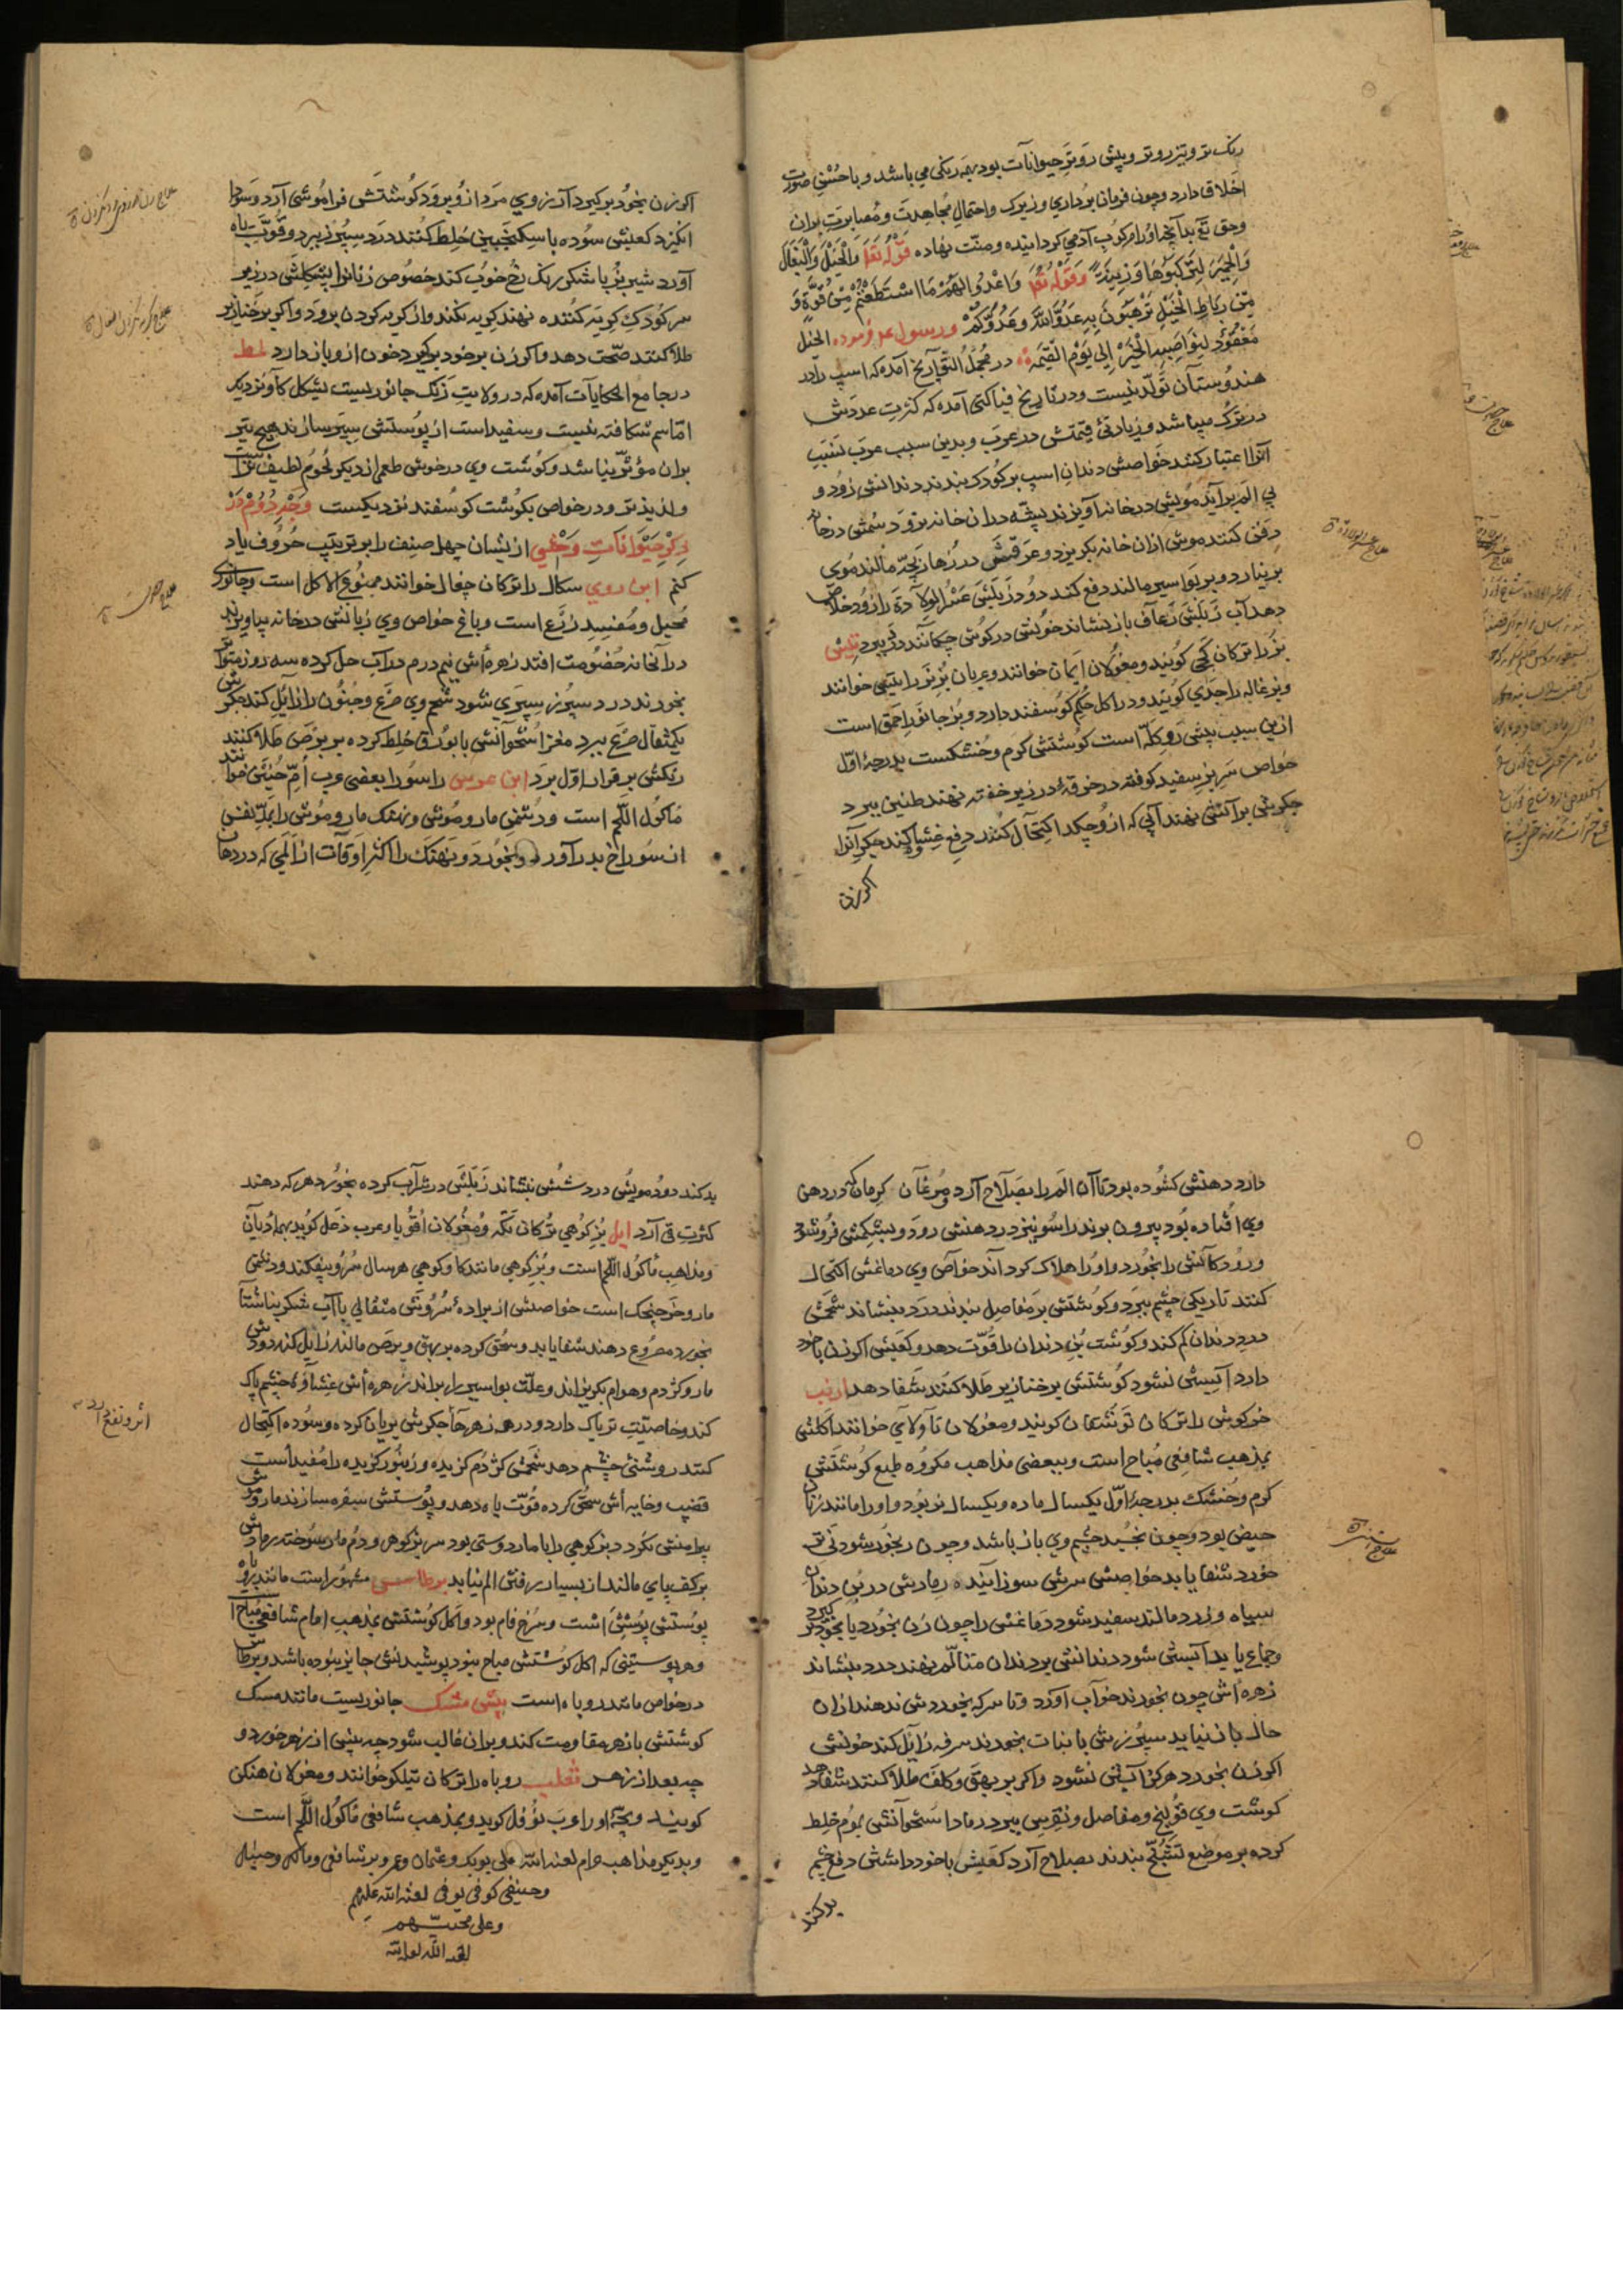 رنک تر و تیز روتر و پیش روتر حیوانات بود بهمه رنکی می باشد و با حسن صورت
اخلاق دارد و چون فرمان برداری و زیرکی و احتمال مجاهدت و مصابرت بران
و حق تع بدانچه او را مرکوب آدمی کردانیده و منت نهاده قوله تعا والخیل والبغال
والحمیر لترکبوها وزینة وقوله تعا واعدوا لهم ما استطعتم من قوة و
من رباط الخیل ترهبون به عدو الله وعدوکم ورسول عم فرموده الخیل
معقود لنواصیها الخیر الی یوم القیمة در مجمل التواریخ آمده که اسپ را در
هندوستان تولد نیست و در تاریخ فناکتی آمده که کثرت عددش
در ترک میباشد و زیادتی قیمتش در عرب و بدین سبب عرب نسب
آنرا اعتبار کنند خواصش دندان اسپ بر کودک بندند دندانش زود و
بی الم برآید مویش در خانه آویزند پشه در ان خانه نرود سمش در خانه
دفن کنند موش ازان خانه بکریزد و عرقش در زهار بچه مالند موی
بر نیارد و بر بواسیر مالند دفع کند دود زبلش عسر الولادة را زود خلاص
دهد آب زبلش رعاف باز نشاند خونش در کوش چکانند درد ببرد تیس
بز را ترکان کجی کویند و مغولان ایمان خوانند و عربان بز نر را تیس خوانند
و بزغاله را جدی کویند و در اکل حکم کوسفند دارد و بز جانور احمق است
ازین سبب پیش رو کله است کوشتش کرم و خشکست بدرجه اول
خواص سر بز سفید کوفته در خرقه در زیر خفته نهند طنین ببرد
جکرش بر آتش نهند آبی که ازو چکد اکتحال کنند دفع غشاوه کند جکر آنرا
اکر زن
اکر زن بخود برکیرد آرزوی مرد ازو برود کوشتش فراموشی آرد و سودا
انکیزد کعبش سوده با سکنجبین خلط کنند درد سپرز ببرد و قوت باه
آورد شیر بز با شکر رنک رخ خوب کند خصوص زنانرا پشکلش در زیر
سر کودک کریه کننده نهند کریه نکند و از کریه کردن برود و اکر بر خنازیر
طلا کنند صحت دهد و اکر زن بر خود برکیرد خون ازو باز دارد لمط
در جامع الحکایات آمده که در ولایت زنک جانوریست بشکل کاو نزدیک
اما سم شکافته نیست و سفید است از پوستش سپر سازند هیچ تیر
بران مؤثر نباشد و کوشت وی در خوشی طعم از دیکر لحوم لطیف تر است
و لذیذ تر و در خواص بکوشت کوسفند نزدیکست وجه دوم در
ذکر حیوانات وحشی از ایشان چهل صنف را بر ترتیب حروف یاد
کنم ابن اوی سکال را ترکان چغال خوانند ممنوع الاکل است و جانوری
محیل و مفسد زرع است و باغ خواص وی زبانش در خانه بیاویزند
در آنخانه خصومت افتد زهره اش نیم درم در آب حل کرده سه روز متواتر
بخورند درد سپرز سپری شود شحم وی صرع و جنون را زایل کند جکرش
یکمثقال صرع ببرد مغز استخوانش با بورق خلط کرده بر برص طلا کنند
رنکش بر قرار اول برد ابن عرس راسو را بعضی عرب ام حنین خوانند
ماکول اللحم است و دشمن مار و موش و نهنک مار و موش را بدم نفس
از سوراخ بدر آورد و بخورد و نهنک را اکثر اوقات از المی که در دهان
دارد دهنش کشوده بود تا آن الم را بصلاح آرد مرغان کرمان که در دهن
وی افتاده بود بیرون برند راسو نیز در دهنش رود و بشکمش فروشود
و رودکانش را بخورد و او را هلاک کرداند خواص وی دماغش اکتحال
کنند تاریکی چشم ببرد و کوشتش بر مفاصل بندند درد بنشاند شحمش
درد دندان کم کند و کوشت بن دندان را قوت دهد و کعبش اکر زن با خود
دارد آبستن نشود کوشتش بر خنازیر طلا کنند شفا دهد ارنب
خرکوش را ترکان توشقان کویند و مغولان تاولای خوانند اکلش
بمذهب شافعی مباح است و ببعضی مذاهب مکروه طبع کوشتش
کرم و خشک بدرجه اول یکسال ماده و یکسال نر بود و او را مانند زنان
حیض بود و چون بخسبد چشم وی باز باشد و چون رنجور شود نی تر
خورد شفا یابد خواصش سرش سوزانیده رمادش در بن دندان
سیاه و زرد مالند سفید شود دماغش را چون زن بخورد یا بخود برکیرد
و جماع یابد آبستن شود دندانش بر دندان متالم نهند درد بنشاند
زهره اش چون بخورند خواب آورد و تا سرکه بخوردش ندهند ازان
حال باز نیاید سپرزش با نبات بخورند سرفه زایل کند خونش
اکر زن بخورد هرکز آبستن نشود و اکر بر بهق و کلف طلا کنند شفا دهد
کوشت وی قولنج و مفاصل و نقرس ببرد رماد استخوانش بموم خلط
کرده بر موضع تشنج بندند بصلاح آرد کعبش با خود داشتن دفع چشم
بد کند
بد کند دود مویش درد شش بنشاند زبلش در شراب کرده بخورد هر که دهند
کثرت قی آرد ایل بز کوهی ترکان تکه و مغولان اقونا و عرب وعل کوید بهمه ادیان
و مذاهب ماکول اللحم است و بز کوهی مانند کاو کوهی هر سال سرو بیفکند و دشمن
مار و خرچنک است خواصش از براده سروش مثقالی با آب شکر بناشتا
بخورد مصروع دهند شفا یابد و سحق کرده بر بهق و برص مالند زایل کند دودش
مار و کژدم و هوام بکریزاند و علت بواسیر را براند زهره اش غشاوه چشم پاک
کند و خاصیت تریاک دارد و در همه زهرها جکرش بریان کرده و سوده اکتحال
کنند روشنی چشم دهد شحمش کژدم کزیده و زنبور کزیده را مفید است
قضیب و خایه اش سحق کرده قوت باه دهد و پوستش سفره سازند مار و موش
پیرامنش نکردد بز کوهی را با مار دوستی بود سر بز کوهی و دم مار سوخته رمادش
بر کف پای مالند از بسیار رفتن الم نیابد برطاسی مشهور است مانند روباه
پوستش پوشش است و سرخ فام بود و اکل کوشتش بمذهب امام شافعی مباح است
و هر پوستینی که اکل کوشتش مباح نبود پوشیدنش جایز نبوده باشد و برطاسی
در خواص مانند روباه است بیش مشک جانوریست مانند مشک
کوشتش با زهر مقاومت کند و بران غالب شود چه پیش از زهر خورد و
چه بعد از زهر ثعلب روباه را ترکان تیلکو خوانند و مغولان هنکن
کویند و بچه او را عرب تؤفل کوید و بمذهب شافعی ماکول اللحم است
و بدیکر مذاهب حرام لعنه الله علی بوبکر و عثمان و عمر و بر شافعی و مالک و حنبلی
و حنیفی کوفی یوفی لعنه الله علیهم
و علی محبیهم